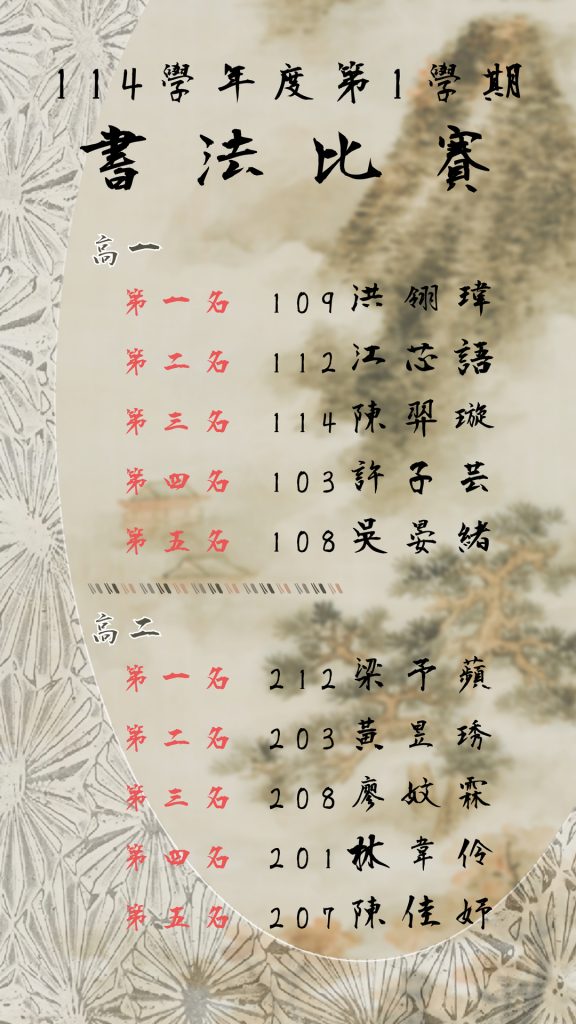 114學年度第1學期
書法比賽
高一
第一名 109洪翎瑋
第二名 112江芯語
第三名 114陳羿璇
第四名 103許子芸
第五名 108吳晏緒
高二
第一名 212梁予蘋
第二名 203黃昱琇
第三名 208廖妏霖
第四名 201林韋伶
第五名 207陳佳妤